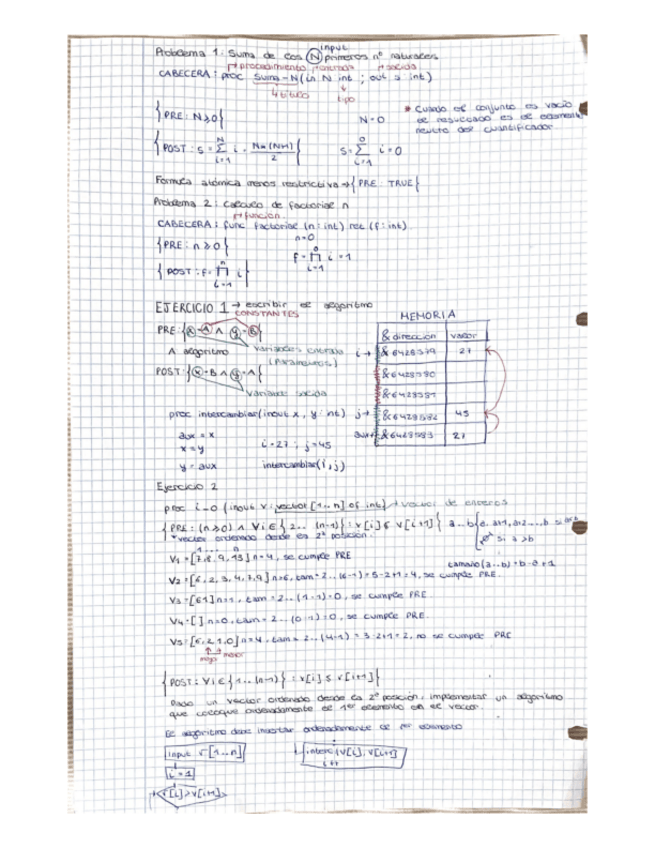 input
Problema 1: Suma de los N primeros nº naturales
procedimiento entrada salida
CABECERA: proc suma-N (in N int ; out s int)
título tipo
{PRE: N≥0}
N=0
* Cuando el conjunto es vacío
el resultado es el elemento
neutro del cuantificador.
{POST: s = N Σ i=1 i = N*(N+1) / 2}
s = 0 Σ i=1 i = 0
Fórmula atómica menos restrictiva → {PRE: TRUE}
Problema 2: cálculo de factorial n
función
CABECERA: func factorial (n: int) ret (f: int).
{PRE: n≥0}
n=0
f = 0 Π i=1 i = 1
{POST: f = n Π i=1 i}
EJERCICIO 1 → escribir el algoritmo
CONSTANTES
PRE: {x=A ∧ y=B}
variables entrada
(Parámetros)
A algoritmo
POST: {x=B ∧ y=A}
variable salida
MEMORIA
& dirección valor
i → &6428579 27
&6428580
&6428581
j → &6428582 45
aux → &6428583 27
proc intercambiar (inout x, y: int)
aux = x
x = y
i=27 ; j=45
y = aux
intercambiar (i, j)
Ejercicio 2
proc i-o (inout v: vector [1...n] of int) → vector de enteros
{PRE: (n≥0) ∧ ∀i ∈ {2...(n-1)} : v[i] ≤ v[i+1]}
a...b { a, a+1, a+2...b si
si a > b
*vector ordenado desde la 2ª posición.
1 .... n
tamaño (a...b) = b-a+1
V1 = [7,8,9,13] n=4, se cumple PRE
V2 = [6,2,3,4,7,9] n=6, tam = 2...(6-1) = 5-2+1 = 4, se cumple PRE.
V3 = [61] n=1, tam = 2...(1-1) = 0, se cumple PRE
V4 = [] n=0, tam = 2...(0-1) = 0, se cumple PRE.
V5 = [6,2,1,0] n=4, tam = 2...(4-1) = 3-2+1 = 2, no se cumple PRE
menor
{POST: ∀i ∈ {1...(n-1)} : v[i] ≤ v[i+1]}
Dado un vector ordenado desde la 2ª posición, implementar un algoritmo
que coloque ordenadamente el 1er elemento en el vector.
El algoritmo debe insertar ordenadamente el 1er elemento
input v[1...n]
interc (v[i], v[i+1])
i++
i = 1
v[i] > v[i+1]